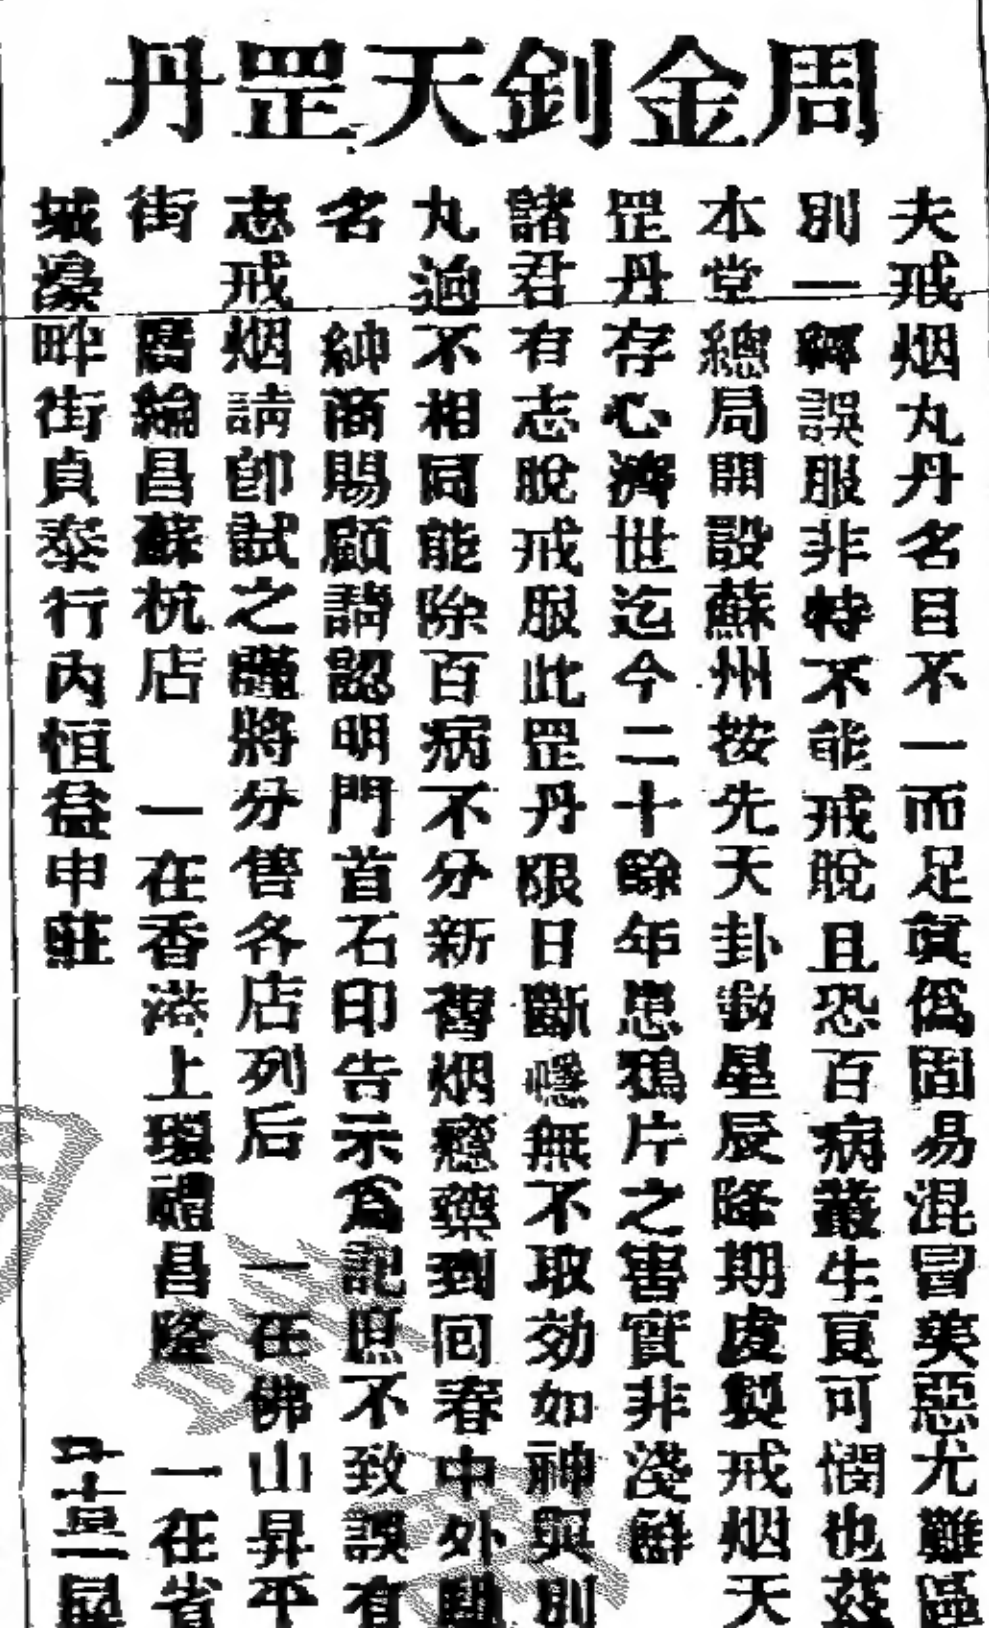 周金釗天罡丹
夫戒烟丸丹名目不一而足真僞固易混冒美惡尤難區
別一經誤服非特不能戒脫且恐百病叢生良可憫也茲
本堂總局開設蘇州按先天卦數星辰降期虔製戒烟天
罡丹存心濟世迄今二十餘年患鴉片之害實非淺鮮
諸君有志脫戒服此罡丹限日斷癮無不取効如神與別
丸逈不相同能除百病不分新舊烟癮藥到回春中外馳
名 紳商賜顧請認明門首石印告示爲記庶不致誤有
志戒烟請卽試之謹將分售各店列后 一在佛山昇平
街 綸昌蘇杭店 一在香港上環禮昌隆 一在省
城濠畔街貞泰行內恒益申莊